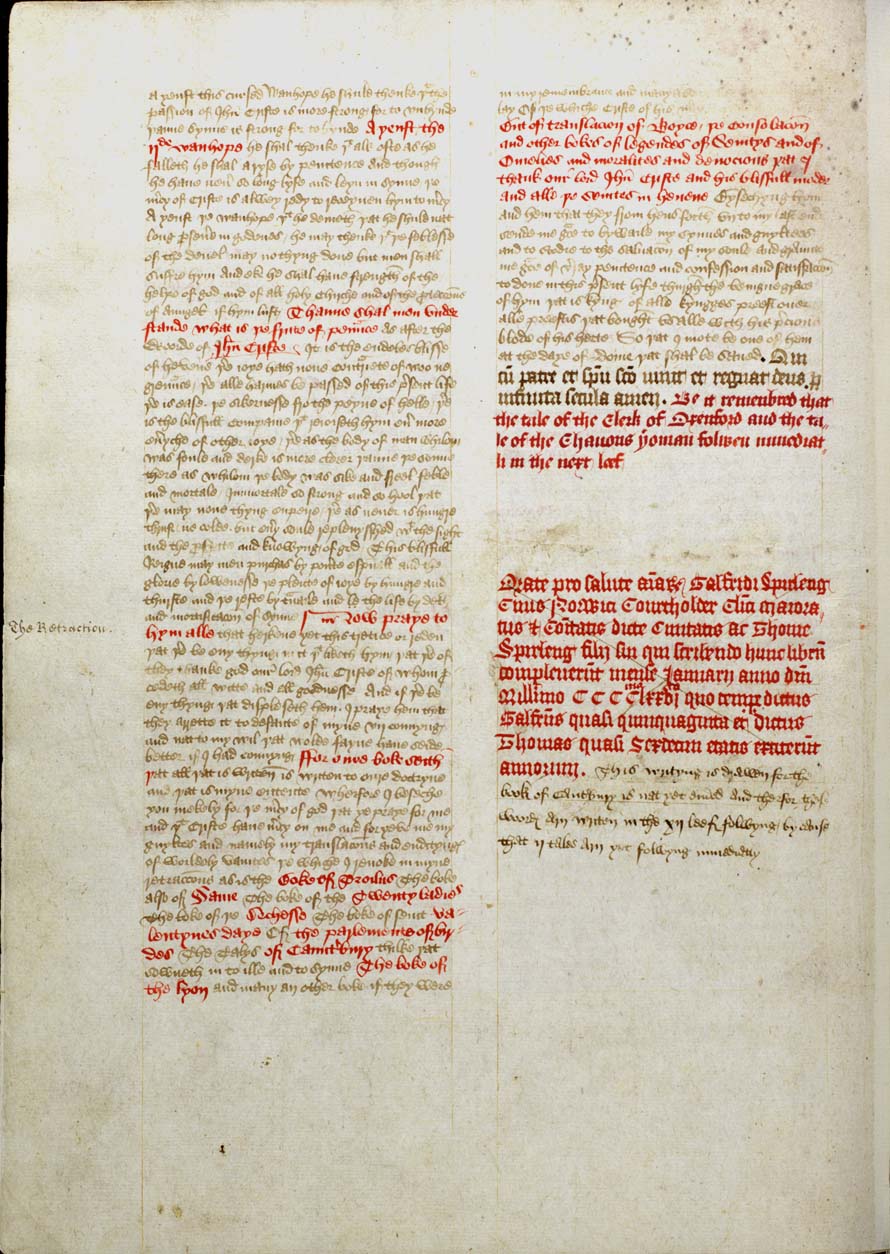 ayenst this cursed Wanhope he shulde thenke þt the
passion of Jhu Criste is more strong for to vnbynde
þanne synne is strong for to bynde Ayenst the
ijde wanhope he shal thenke þt als ofte as he
falleth he shal aryse by penitence And though
he haue neuer so long lyfe and leyn in synne þe
mercy of Criste is alwey redy to receyuen hym to mercy
Ayenst þe wanhope þt he demeth þat he shuld nat
long perseuere in godenes / he may thenke þt þe feblesse
of the deuel may nothyng done but men shall
suffre hym And ek he shal haue strength of the
helpe of god and of all holy Chirche and of the proteccion
of aungels if hym list Thanne shal men vnder
stande what is þe frute of penance As after the
Worde of Jhu Criste It is the endeles blisse
of heuene þer ioye hath none contrarite of woo ne
greuance / þer alle harmes be passed of this present life
þer is ease þe sikernesse fro the peyne of helle / þer
is the blisfull companye þt reioiseth hym euer more
eueryche of other ioye / þer as the body of man whilom
was foule and derke is more clere þanne þe sonne
there as whilom þe body was sike and freel feble
and mortale / Inmortale so strong and so hool þat
þer may none thyng enpeire / þer as neuer is hungre
thurst ne colde . but euery soule replenysshed wt the sight
and the and knowyng of god This blisfull
Reigne may men purchas by pouerte espirituall and the
glorie by lowenesse þe plente of ioye by hungre and
thurste and þe reste by trauaile and le the life by deth
and mortificacion of synne Now praye to
hym alle that herkene þis tretice or reden
þat yf þer be eny thyng in it þt liketh hym þat þer of
they thanke god our lord Jhu Criste of whom pro
cedeth all witte and all goodnesse And if þer be
eny thyng þat displeseth hem I praye hem that
they arrette it to defaute of myne vn connyng
and nat to my wil þat wolde fayne haue seide
better if I had connyng ffor oure boke seith
þat all þat is writen is writen to oure doctryne
and þat is myne entente Wherfore I beseche
you mekely for þe mercy of god þat ye praye for me
and þt Criste haue mercy on me and foryeue me my
gyltes and namely my translacions and enditynges
of worldely vanites þe whiche I reuoke in myne
retraccions as is the Boke of Troilus The boke
also of Fame The boke of the Twenty ladies
The boke of þe Duchesse The boke of seint Va-
lentynes daye Of the parlement of bir-
des The Talys of Caunterbury thilke þat
sowneth in to ille and to synne The boke of
the lyon and many an other boke if they were
The Retraction.
in my remembrance and many a
lay Of þe whiche Criste of his
But of translacion of Boyce / þe consolacion
and other bokes of legendes of Seintys and of
Omelies and moralites and deuocions þat I
thank our lord Jhu Criste and his blisfull moder
and alle þe Seintes in heuene Besechyng hym
and hem that they from hens forth vn to my last ende
sende me grace to bywaile my synnes and gyltes
and to stodie to the saluacion of my soule and graunte
me grace of verray penitence and confession and satisfaccion
to done in this present lyfe thurgh the benigne grace
of hym þat is kyng of alle kynges preest ouer
alle preestis þat bought vs alle with his precious
blode of his herte So þat I mote be one of hem
at the daye of dome þat shal be saued . Qui
cu patre et spu sco viuit et regnat deus . p
infinita secula amen . Be it remembred that
the tale of the Clerk of Oxenford and the ta-
le of the Chanons yoman folwen immediat-
li in the next leef
Orate pro salute aiar Galfridi Spirleng
Ciuis Norwici Courtholder Clici maiora-
tus & Coitatis dicte Ciuitatis ac Thome
Spirleng filii sui qui scribendo hunc libru
compleuerut mense Januarii anno dni
Millimo CCCC lxxvi quo tempe dictus
Galfrus quasi quinquaginta et dictus
Thomas quasi Sexdecim etatis extiterut
annorum. This writyng is drawen for the
book of Cauntbury is nat yet ended And therfor thes
wordes Arn writen in the xij leef folwyng / by cause
that ij tales Arn yet folwyng immediatly